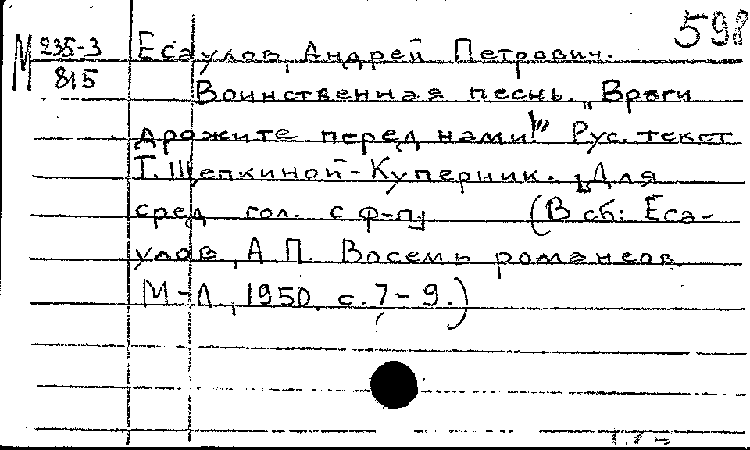 598
М 235-3
815
Есаулов, Андрей Петрович.
Воинственная песнь. „Враги
дрожите перед нами!" Рус. текст
Т. Щепкиной-Куперник. Для
сред гол. с ф-п
(В сб: Еса-
улов, А П. Восемь романсов
М-Л, 1950. с. 7-9.)